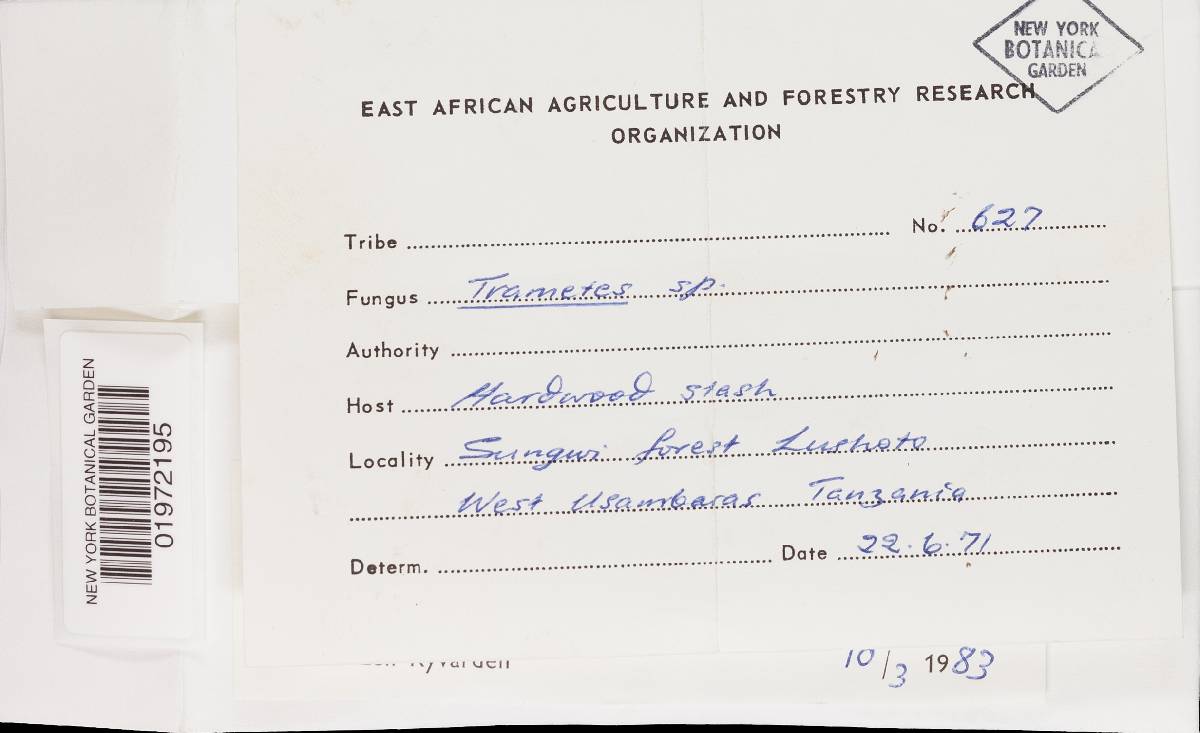 NEW YORK
BOTANICA
GARDEN
EAST AFRICAN AGRICULTURE AND FORESTRY RESEARCH
ORGANIZATION
Tribe
No. 627
Fungus Trametes sp.
Authority
Host Hardwood slash
Locality Sungwi forest Lushoto
West Usambaras Tanzania
Determ.
Date 22.6.71
Ryvarden
10/3 1983
NEW YORK BOTANICAL GARDEN
01972195